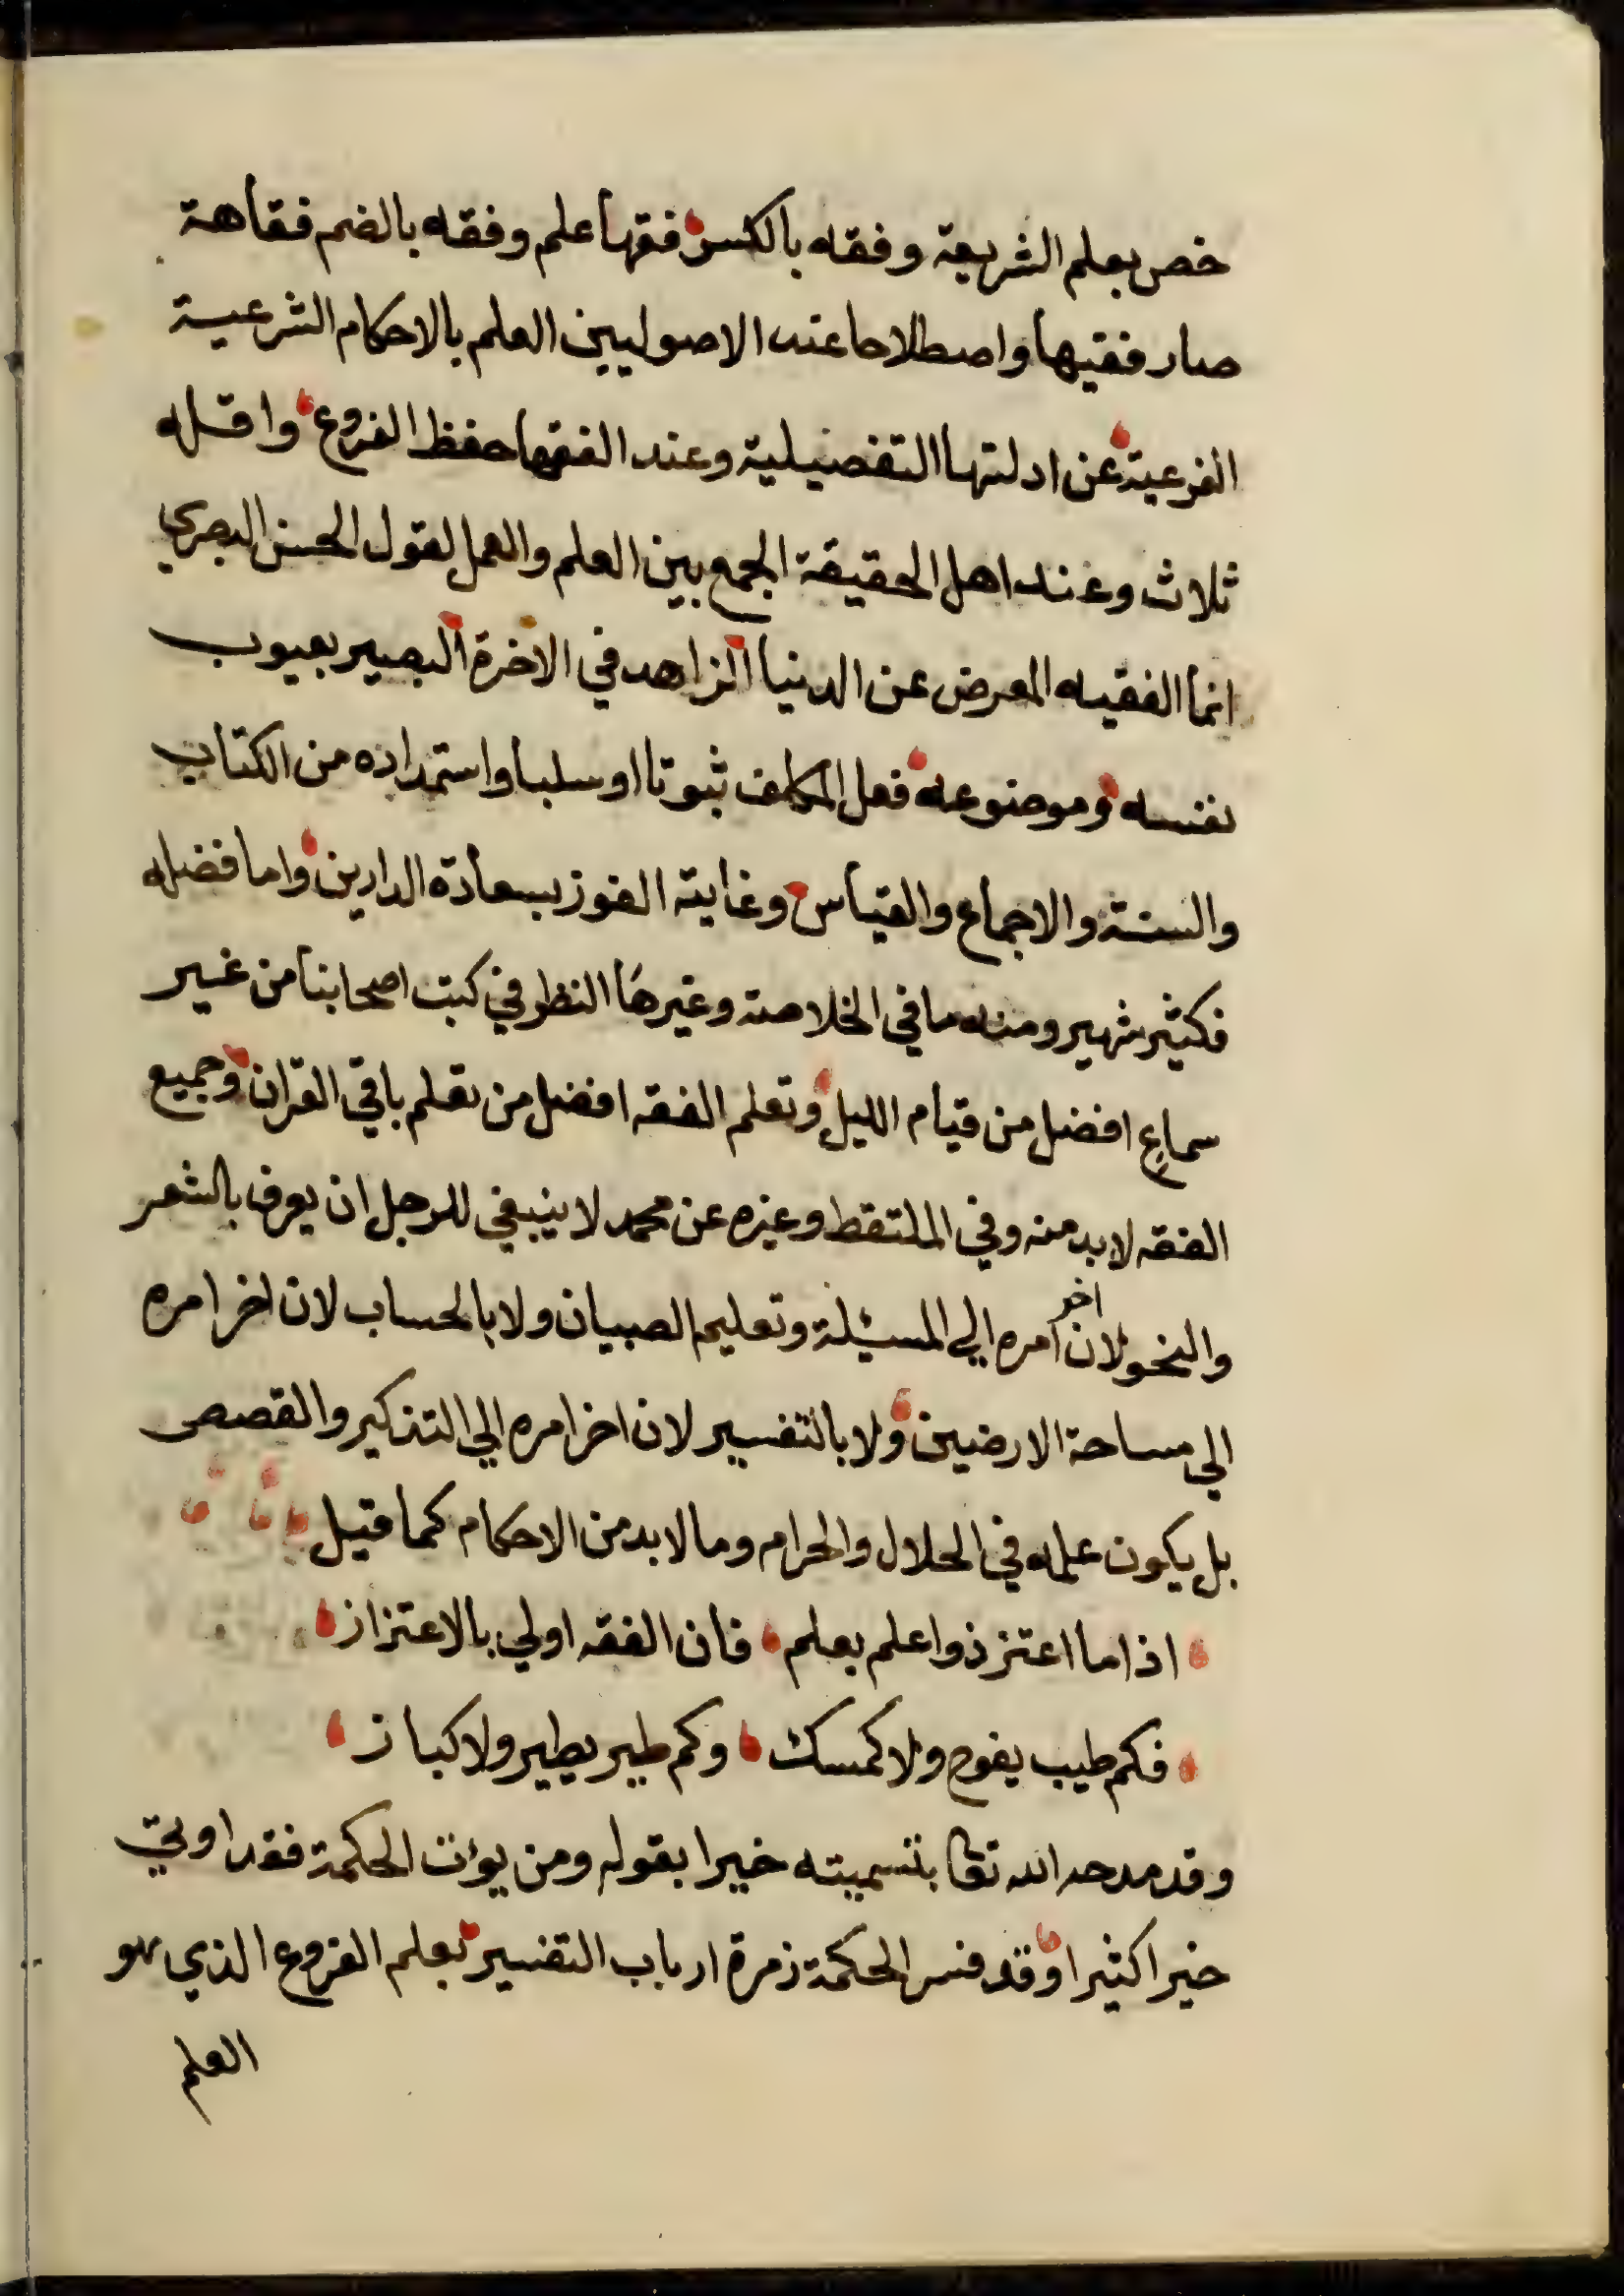 خص بعلم الشريعة وفقه بالكسر فقها علم وفقه بالضم فقاهة
صار فقيها واصطلاحا عند الاصوليين العلم بالاحكام الشرعية
الفرعية عن ادلتها التفصيلية وعند الفقها حفظ الفروع واقله
ثلاث وعند اهل الحقيقة الجمع بين العلم والعمل لقول الحسن البصري
انما الفقيه المعرض عن الدنيا الزاهد في الاخرة البصير بعيوب
نفسه وموضوعه فعل المكلف ثبوتا او سلبا واستمداده من الكتاب
والسنة والاجماع والقياس وغايته الفوز بسعادة الدارين واما فضله
فكثير شهير ومنه ما في الخلاصة وغيرها النظر في كتب اصحابنا من غير
سماع افضل من قيام الليل وتعلم الفقه افضل من تعلم باقي القران وجميع
الفقه لابد منه وفي الملتقط وغيره عن محمد لا ينبغي للرجل ان يعرف بالشعر
والنحو لان اخر امره الي المسئلة وتعليم الصبيان ولا بالحساب لان اخر امره
الي مساحة الارضيين ولا بالتفسير لان اخر امره الي التذكير والقصص
بل يكون علمه في الحلال والحرام وما لابد من الاحكام كما قيل
اذا ما اعتز ذوا علم بعلم فان الفقه اولي بالاعتزاز
فكم طيب يفوح ولا كمسك وكم طير يطير ولا كباز
وقد مدحه الله تعا بتسميته خيرا بقوله ومن يؤت الحكمة فقد اوتي
خيرا كثيرا وقد فسر الحكمة زمرة ارباب التفسير بعلم الفروع الذي هو
العلم